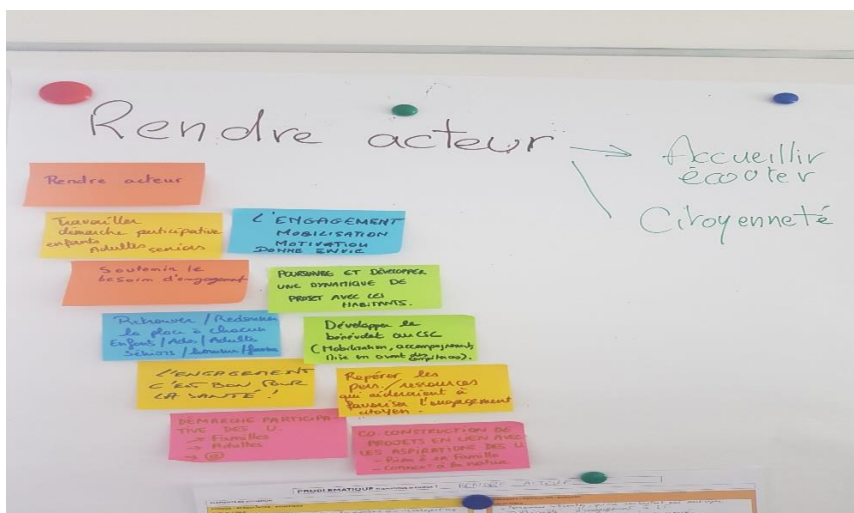 Rendre acteur
Accueillir
écouter
Citoyenneté
Rendre acteur
Travailler
démarche participative
enfants
Adultes seniors
L'ENGAGEMENT
MOBILISATION
MOTIVATION
DONNE ENVIE
Soutenir le
besoin d'engagement
POURSUIVRE ET DÉVELOPPER
UNE DYNAMIQUE DE
PROJET AVEC LES
HABITANTS.
Retrouver / Redonner
la place à chacun
Enfants / Ados / Adultes
Séniors / homme / femme
Développer le
bénévolat au CSC
(Mobilisation, accompagnement,
Mise en avant des compétences).
L'ENGAGEMENT
C'EST BON POUR
LA SANTÉ !
Repérer les
pers. / ressources
qui aideraient à
favoriser l'engagement
citoyen.
DÉMARCHE PARTICIPA-
TIVE DES U.
→ Familles
→ Adultes
CO-CONSTRUCTION DE
PROJETS EN LIEN AVEC
LES ASPIRATIONS DES U.
PROBLÉMATIQUE
ACTEUR